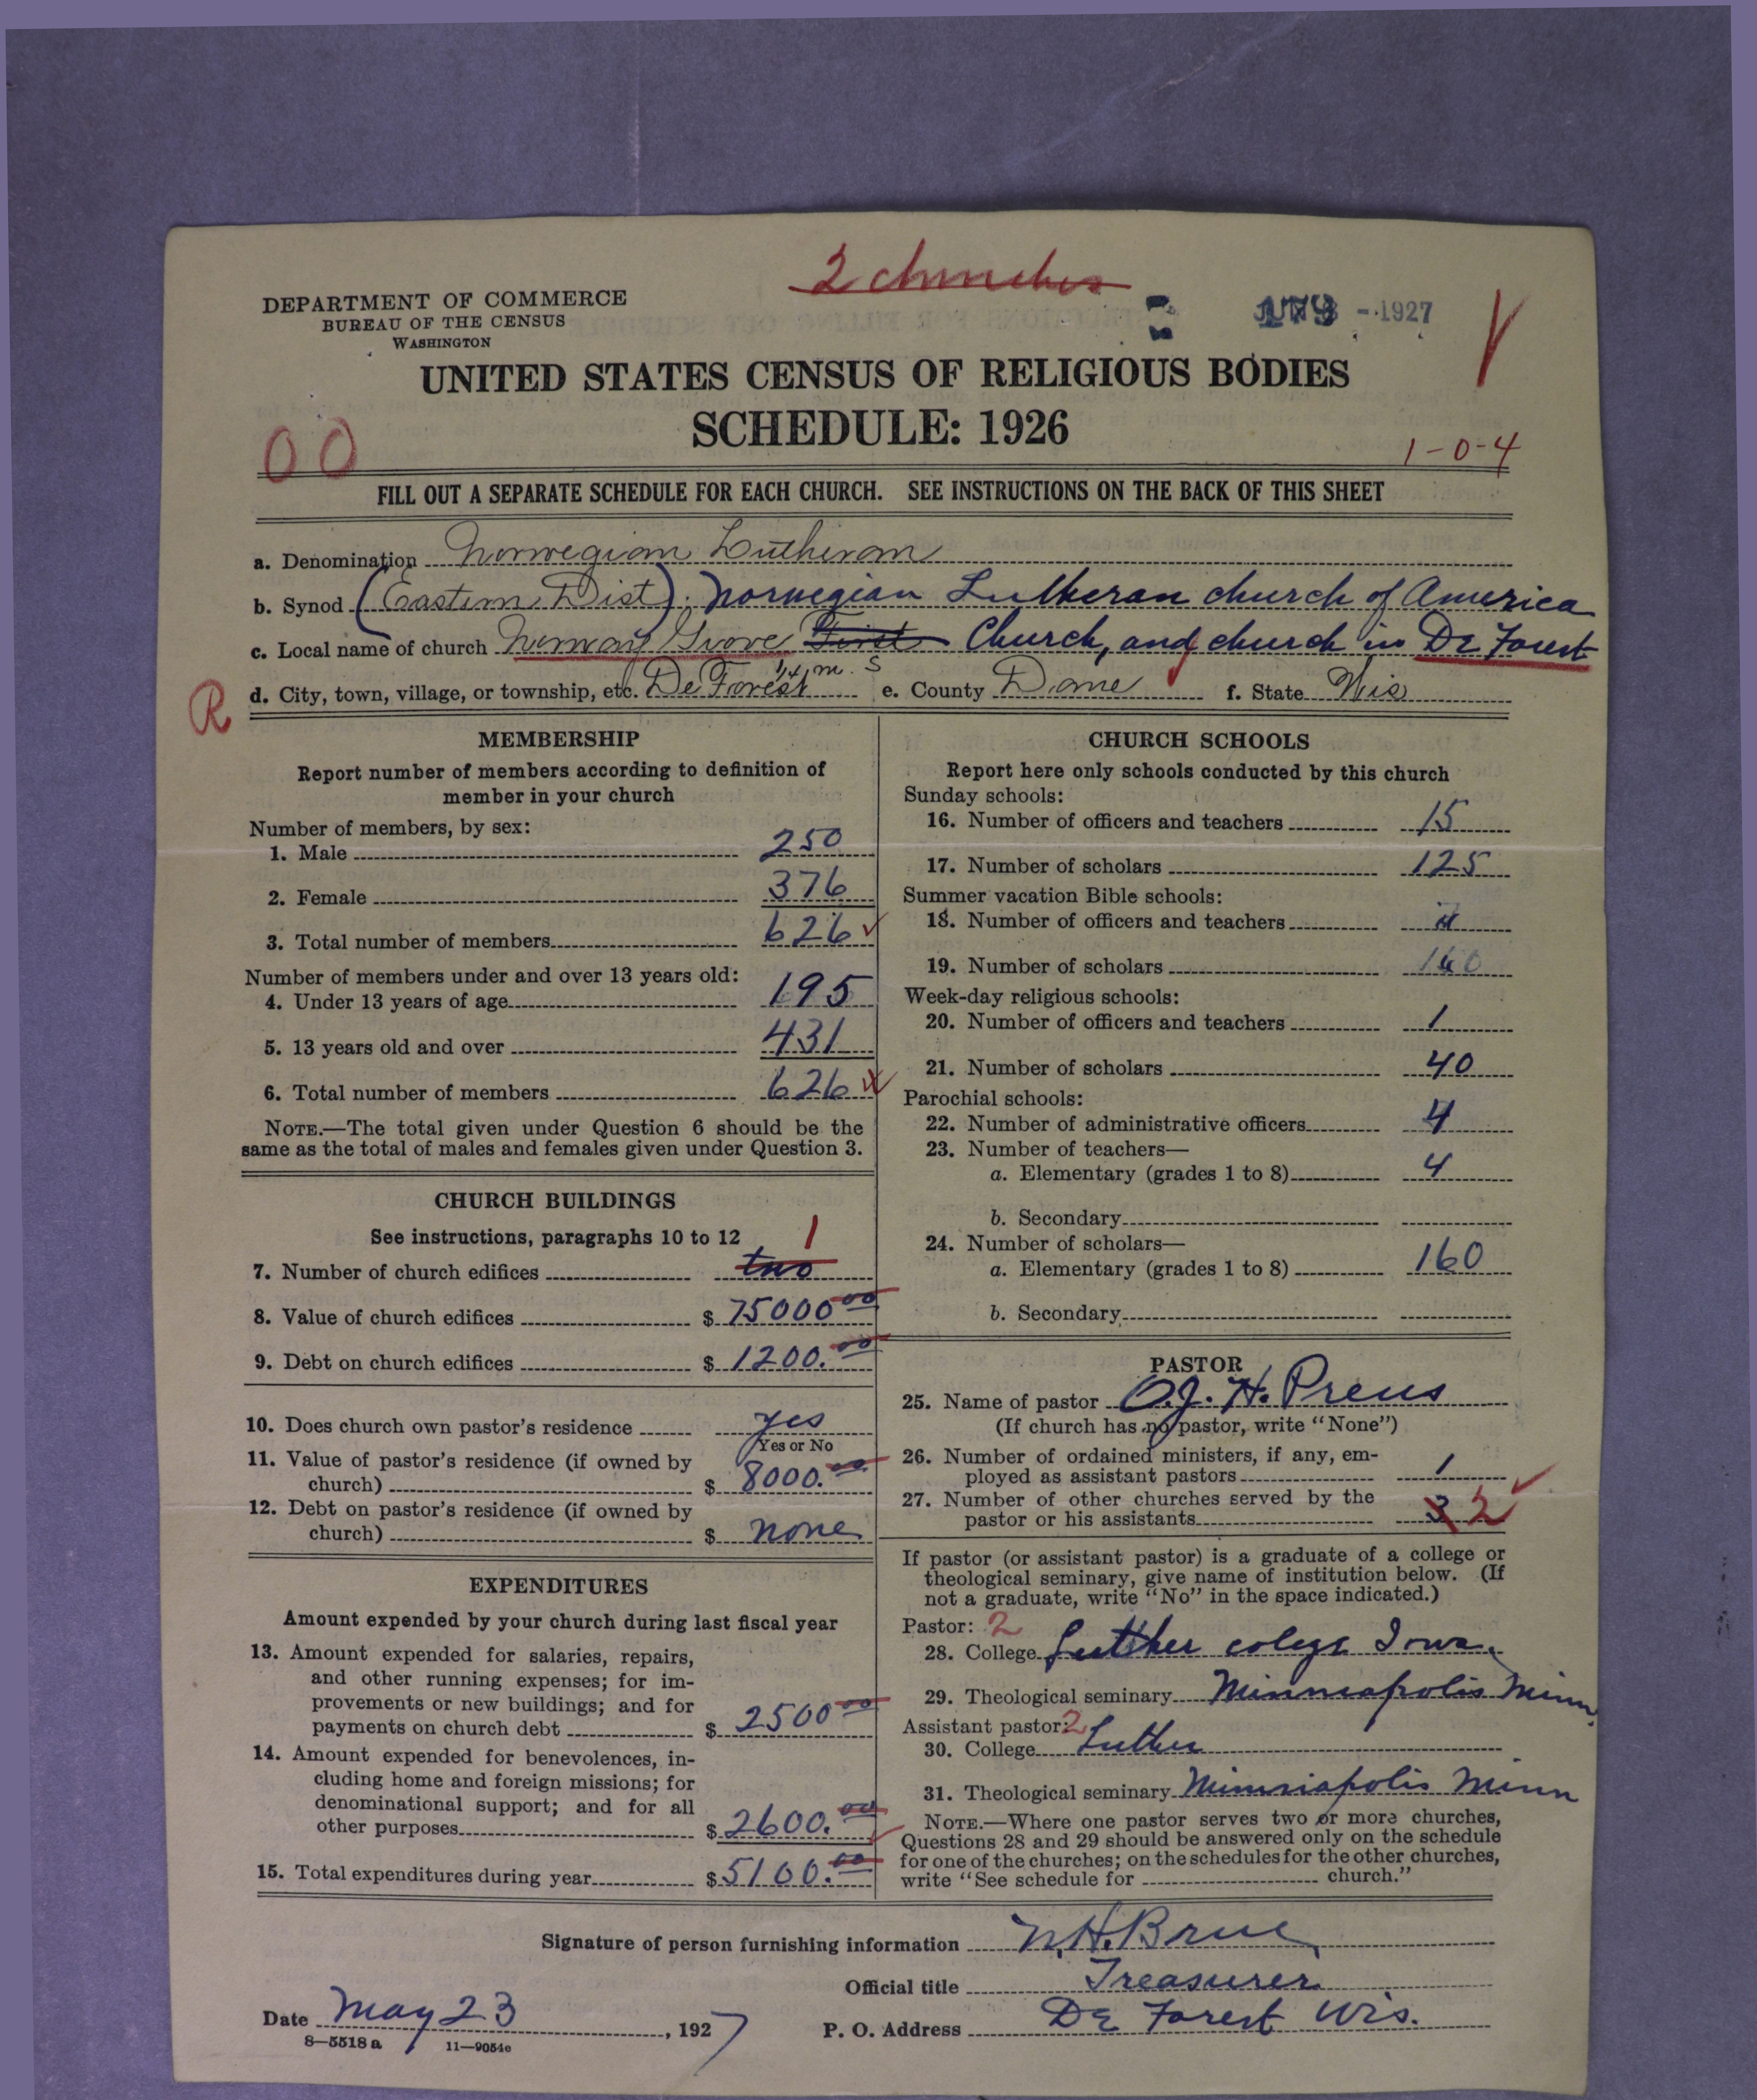 2 churches
DEPARTMENT OF COMMERCE
BUREAU OF THE CENSUS
WASHINGTON
- 1927
UNITED STATES CENSUS OF RELIGIOUS BODIES
SCHEDULE: 1926
00
1-0-4
FILL OUT A SEPARATE SCHEDULE FOR EACH CHURCH. SEE INSTRUCTIONS ON THE BACK OF THIS SHEET
a. Denomination Norwegian Lutheran
b. Synod (Eastern Dist). Norwegian Lutheran church of America
c. Local name of church Norway Grove First Church, and church in De Forest
d. City, town, village, or township, etc. De Forest 1/4 m. S e. County Dane f. State Wis
R
MEMBERSHIP
Report number of members according to definition of
member in your church
Number of members, by sex:
1. Male 250
2. Female 376
3. Total number of members 626
Number of members under and over 13 years old:
4. Under 13 years of age 195
5. 13 years old and over 431
6. Total number of members 626
NOTE.—The total given under Question 6 should be the
same as the total of males and females given under Question 3.
CHURCH BUILDINGS
See instructions, paragraphs 10 to 12
1
7. Number of church edifices two
8. Value of church edifices $ 75000 00
9. Debt on church edifices $ 1200.00
10. Does church own pastor's residence yes
Yes or No
11. Value of pastor's residence (if owned by
church) $ 8000.00
12. Debt on pastor's residence (if owned by
church) $ none
EXPENDITURES
Amount expended by your church during last fiscal year
13. Amount expended for salaries, repairs,
and other running expenses; for im-
provements or new buildings; and for
payments on church debt $ 2500 00
14. Amount expended for benevolences, in-
cluding home and foreign missions; for
denominational support; and for all
other purposes $ 2600.00
15. Total expenditures during year $ 5100.00
CHURCH SCHOOLS
Report here only schools conducted by this church
Sunday schools:
16. Number of officers and teachers 15
17. Number of scholars 125
Summer vacation Bible schools:
18. Number of officers and teachers
19. Number of scholars 160
Week-day religious schools:
20. Number of officers and teachers 1
21. Number of scholars 40
Parochial schools:
22. Number of administrative officers 4
23. Number of teachers—
a. Elementary (grades 1 to 8) 4
b. Secondary
24. Number of scholars—
a. Elementary (grades 1 to 8) 160
b. Secondary
PASTOR
25. Name of pastor O.J. H. Preus
(If church has no pastor, write "None")
26. Number of ordained ministers, if any, em-
ployed as assistant pastors 1
27. Number of other churches served by the
pastor or his assistants 3 2
If pastor (or assistant pastor) is a graduate of a college or
theological seminary, give name of institution below. (If
not a graduate, write "No" in the space indicated.)
Pastor: 2
28. College Luther colege Iowa
29. Theological seminary Minneapolis Minn.
Assistant pastor: 2
30. College Luther
31. Theological seminary Minneapolis Minn
NOTE.—Where one pastor serves two or more churches,
Questions 28 and 29 should be answered only on the schedule
for one of the churches; on the schedules for the other churches,
write "See schedule for church."
Signature of person furnishing information N.H. Brue
Official title Treasurer
Date May 23, 1927 P. O. Address De Forest Wis.
8—5518 a 11—9054e